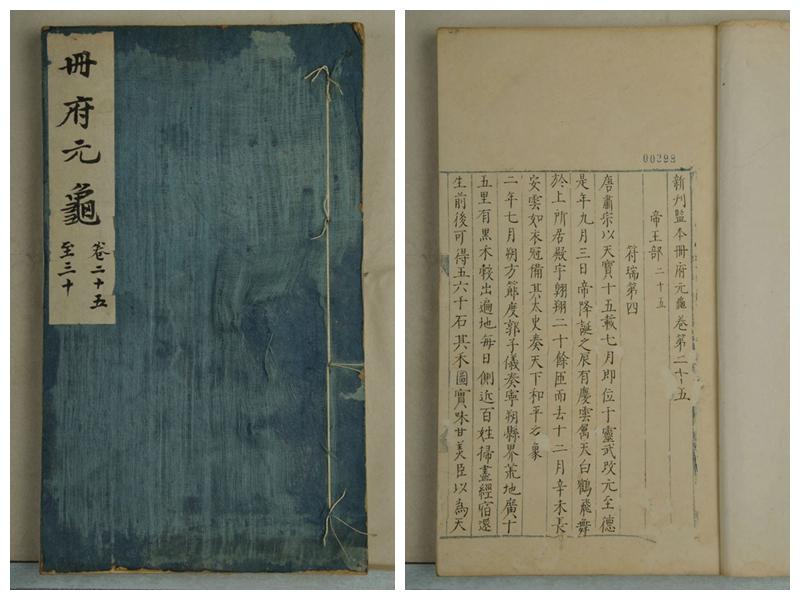 冊府元龜
卷二十五
至三十
00298
新刊監本冊府元龜卷第二十五
帝王部 二十五
符瑞第四
唐肅宗以天寶十五載七月即位于靈武改元至德
是年九月三日帝降誕之辰有慶雲屬天白鶴飛舞
於上所居殿宇翱翔二十餘匝而去十二月辛未長
安雲如衣冠備其太史奏天下和平之象
二年七月朔方節度郭子儀奏寧朔縣界荒地廣十
五里有黑禾穀出遍地每日側近百姓掃盡經宿還
生前後可得五六千石其禾圓實味甘美臣以為天